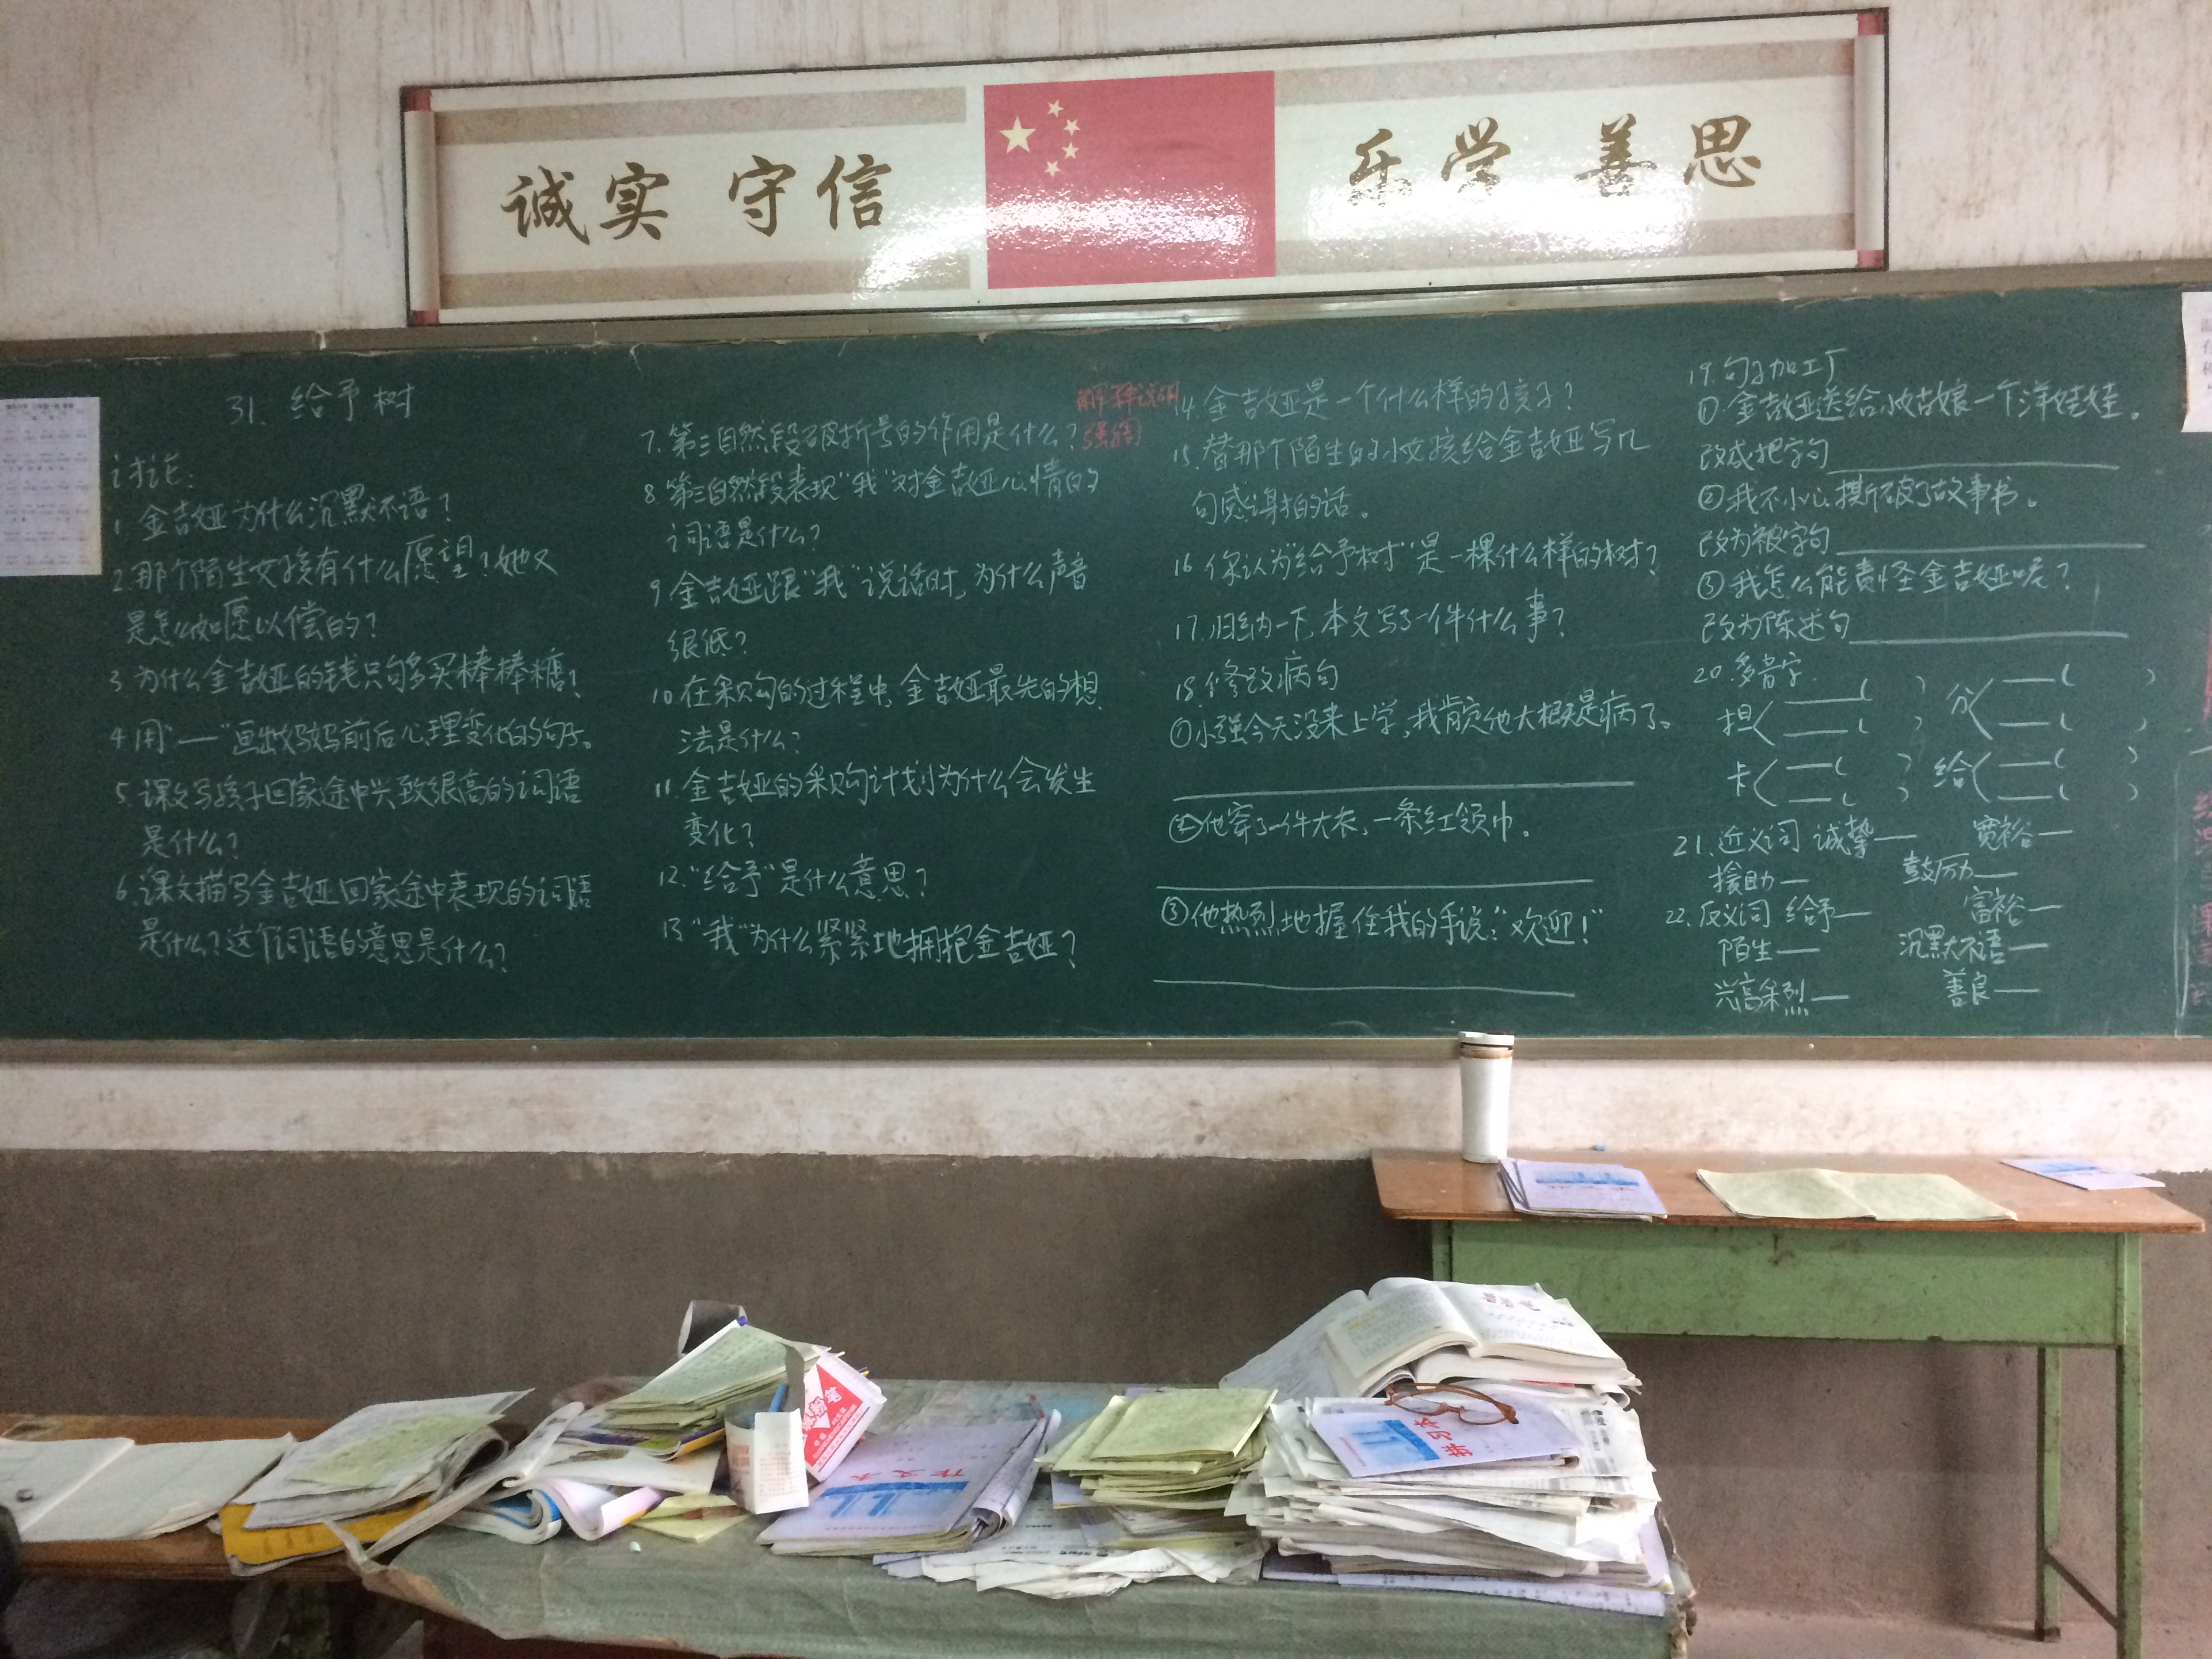 诚实 守信
乐学 善思
31. 给予树
讨论:
1 金吉娅为什么沉默不语?
2.那个陌生女孩有什么愿望?她又
是怎么如愿以偿的?
3 为什么金吉娅的钱只够买棒棒糖?
4 用"——"画出妈妈前后心理变化的句子。
5.课文写孩子回家途中兴致很高的词语
是什么?
6.课文描写金吉娅回家途中表现的词语
是什么?这个词语的意思是什么?
7.第三自然段破折号的作用是什么?
解释说明
强调
8.第三自然段表现"我"对金吉娅心情的
词语是什么?
9 金吉娅跟"我"说话时,为什么声音
很低?
10 在采购的过程中,金吉娅最先的想
法是什么?
11.金吉娅的采购计划为什么会发生
变化?
12."给予"是什么意思?
13 "我"为什么紧紧地拥抱金吉娅?
14.金吉娅是一个什么样的孩子?
15.替那个陌生的小女孩给金吉娅写几
句感谢的话。
16 你认为"给予树"是一棵什么样的树?
17.归纳一下,本文写了一件什么事?
18.修改病句
①小强今天没来上学,我肯定他大概是病了。
②他穿了一件大衣,一条红领巾。
③他热烈地握住我的手说:"欢迎!"
19.句子加工厂
①金吉娅送给小姑娘一个洋娃娃。
改成把字句
②我不小心撕破了故事书。
改为被字句
③我怎么能责怪金吉娅呢?
改为陈述句
20.多音字
担 ( ) 分 ( )
( ) ( )
卡 ( ) 给 ( )
( ) ( )
21.近义词 诚挚— 宽裕—
援助— 鼓励—
22.反义词 给予— 富裕—
陌生— 沉默不语—
兴高采烈— 善良—
作文本